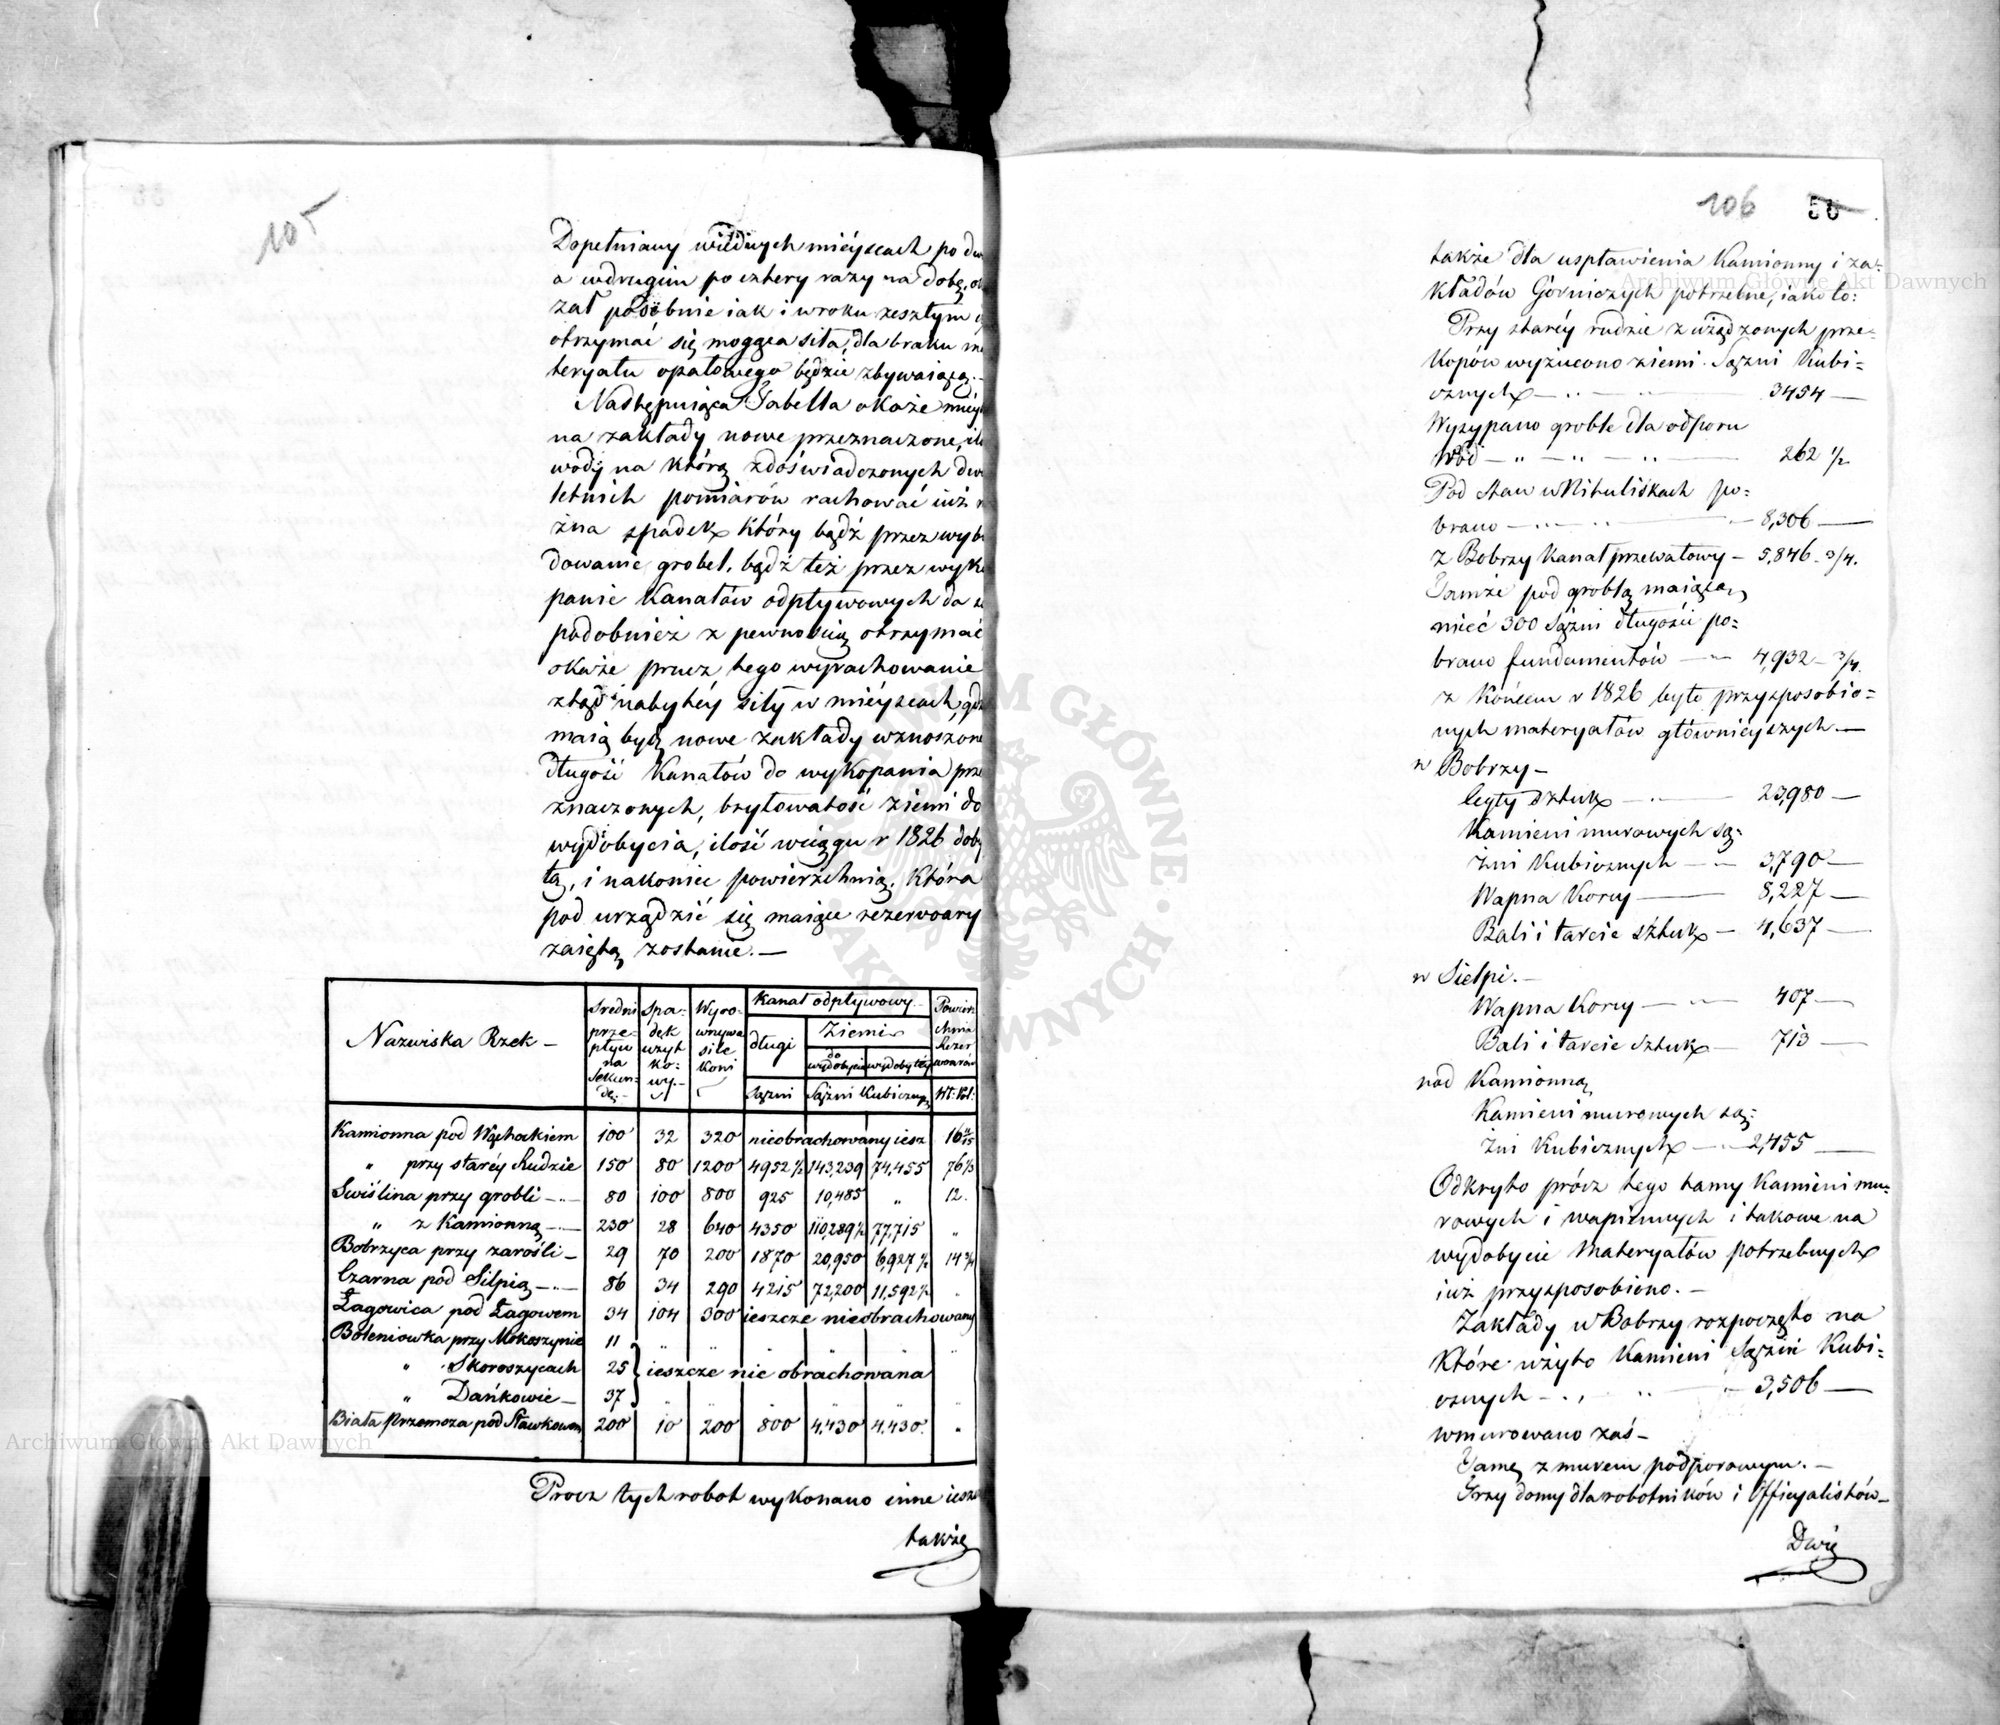 105
Dopełniany wiednych mieyscach po dw
a wdrugim po cztery razy na dobę, ok
zał podobnie iak i wroku zeszłym
otrzymać się mogąca siła, dla braku ma
teryału opałowego będzie zbywaiącą.-
Nadstępuiąca Tabella okaże mieys
na zakłady nowe przeznaczone, ilo
wody na którą zdoświadczonych dwu
letnich pomiarów rachować iuż m
żna spadek który bądź przez wybu
dowanie grobel, bądź też przez wyko
panie Kanałów odpływowych da się
podobnież z pewnością otrzymać
okaże prucz tego wyrachowanie
ztąd nabytéy siły w mieyscach, gdzi
maią bydź nowe zakłady wznoszone
długość Kanałów do wykopania prze
znaczonych, bryłowatość ziemi do
wydobycia, ilość wciągu r 1826 doby
tą, i nakoniec powierzchnią, która
pod urządzić się maiące rezerwoary
zaiętą zostanie.—
Nazwiska Rzek — Średni prze- pływ na Sekun- dę.- Spa- dek użyt ko- wy.- Wyro- wnywa sile koni Kanał odpływowy Powierz chnia Rezer woarów
długi Ziemi
do wydobycia wydobytéy
Sążni Sążni Kubicznych M: Pol:
Kamionna pod Wąchockiem 100 32 320 nieobrachowany iesz 16
„ przy staréy Rudzie 150 80 1200 4952½ 143,239 74,455 76⅓
Swiślina przy grobli — 80 100 800 925 10,485 „ 12.
„ z Kamionną — 230 28 640 4350 110,289½ 77,715 „
Bobrzyca przy zarośli — 29 70 200 1870 20,950 6,927½ 14¾
Czarna pod Silpią — 86 34 290 4215 72,200 11,592½ „
Łagowica pod Łagowem 34 104 300 ieszcze nieobrachowany
Boleniowka przy Mokoszynie 11
„ Skoroszycach 25 ieszcze nie obrachowana
„ Dańkowie — 37
Biała Przemsza pod Sławkowem 200 10 200 800 4,430 4,430. „
Procz tych robot wykonano inne iesz
także
106 50
także dla uspławienia Kamionny i za-
kładów Górniczych potrzebne, iako to:
Przy staréy rudzie z urządzonych prze-
kopów wyrzucono ziemi Sążni Kubi=
cznych — „ — „ — 3454 —
Wysypano groble dla odporu
Wód — „ — „ — „ — 262 ½
Pod Staw w Nituliskach po=
brano — „ — „ — 8,306 —
z Bobrzy Kanał przewałowy — 5,846 ¾.
Tamże pod groblą maiącą
mieć 300 Sążni długości po=
brano fundamentów — „ — 4,932 — ¾.
z Końcem r 1826 było przysposobio=
nych materyałów główniejszych.—
w Bobrzy —
Cegły Sztuk — „ — 23,980 —
Kamieni murowych Są=
żni Kubicznych — „ — 3,790 —
Wapna Korcy — 8,227 —
Bali i tarcic sztuk — 4,637 —
w Sielpi.—
Wapna Korcy — „ — 407 —
Bali i tarcic Sztuk — 713 —
nad Kamionną
Kamieni murowych Są=
żni Kubicznych — „ — 2,455 —
Odkryto prócz tego łamy Kamieni mu=
rowych i wapiennych i takowe na
wydobycie Materyałów potrzebnych
iuż przysposobiono.—
Zakłady w Bobrzy rozpoczęto na
Które użyto Kamieni Sążni Kubi=
cznych — „ — „ — 3,506 —
wmurowano zaś —
Tamę z murem podporowym.—
Trzy domy dla robotników i Officyalistów —
Dwie
Archiwum Główne Akt Dawnych
Archiwum Główne Akt Dawnych
ARCHIWUM GŁÓWNE AKT DAWNYCH